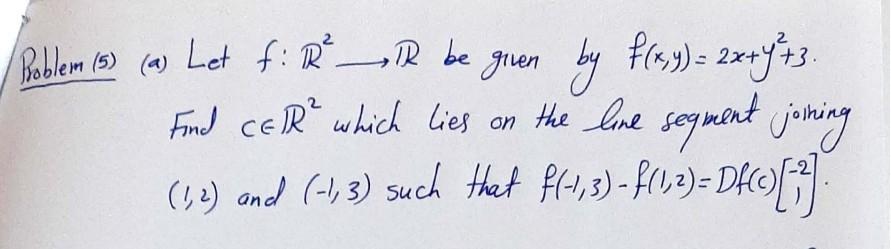 Problem (5) (a) Let f: ℝ² → ℝ be given by f(x,y) = 2x+y²+3.
Find c∈ℝ² which lies on the line segment joining
(1,2) and (-1,3) such that f(-1,3)-f(1,2)=Df(c)[-2 1].